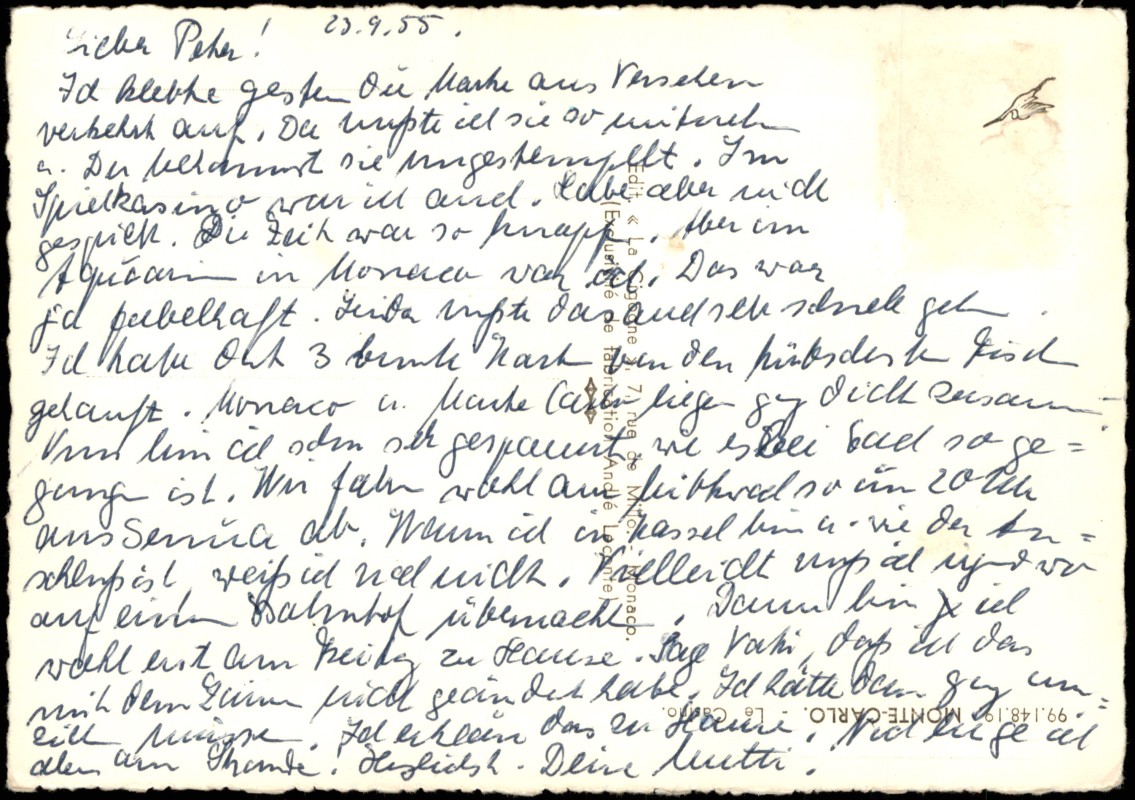 23.9.55.
Lieber Peter!
Ich klebte gestern die Marke aus Versehen
verkehrt auf. Da mußte ich sie so mitnehmen
u. Du bekommst sie ungestempelt. Im
Spielkasino war ich auch. Habe aber nicht
gespielt. Die Zeit war so knapp. Aber im
Aquarium in Monaco war ich. Das war
ja fabelhaft. Leider mußte das auch sehr schnell gehen.
Ich habe dort 3 bunte Karten von den hübschesten Fischen
gekauft. Monaco u. Monte Carlo liegen ganz dicht zusammen
Nun bin ich schon sehr gespannt, wie es bei Euch so ge=
gangen ist. Wir fahren wohl am Mittwoch so um 20 Uhr
aus Genua ab. Wann ich in Kassel bin u. wie der An=
schluß ist, weiß ich noch nicht. Vielleicht muß ich irgendwo
auf einem Bahnhof übernachten. Dann bin ich
wohl erst am Freitag zu Hause. Sage Vati, daß ich das
mit dem Zimmer nicht geändert habe. Ich hätte dann ganz um=
ziehen müssen. Ich erkläre das zu Hause. Noch liege ich
oben am Strande! Herzlichst. Deine Mutti.
Edit. « La Cigogne », 7, rue de Millo. - Monaco.
(Exclusivité de fabrication André Leconte)
99.148.19 MONTE-CARLO. - Le Casino.